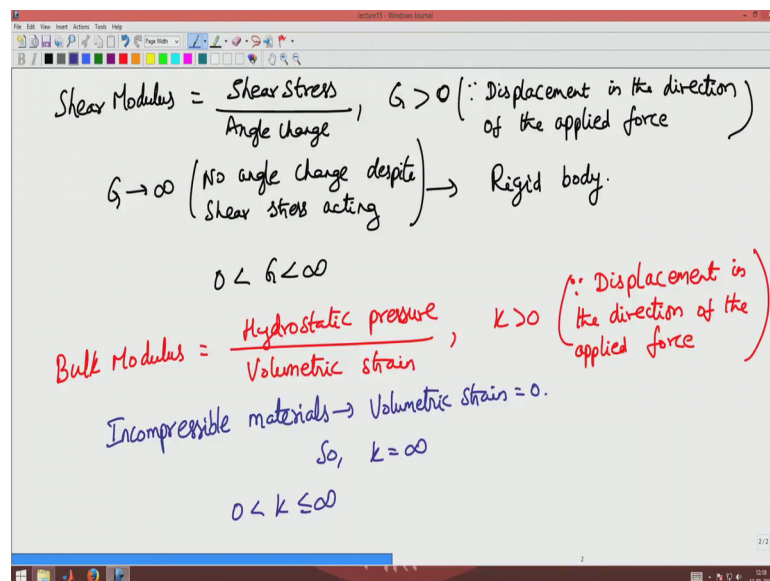 lecture15 - Windows Journal
File Edit View Insert Actions Tools Help
Page Width
B I
Shear Modulus = Shear Stress / Angle Change, G > 0 (∵ Displacement in the direction
of the applied force)
G → ∞ (No angle change despite
Shear stress acting) → Rigid body.
0 < G < ∞
Bulk Modulus = Hydrostatic pressure / Volumetric strain, K > 0 (∵ Displacement in
the direction of the
applied force)
Incompressible materials → Volumetric strain = 0.
So, K = ∞
0 < K ≤ ∞
2/2
2
12:18